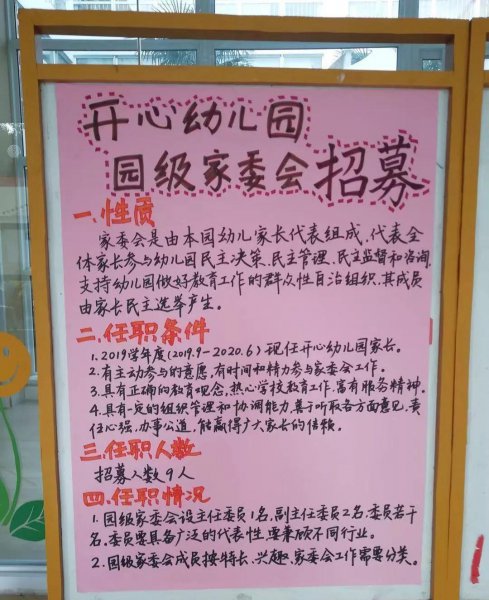 开心幼儿园
园级家委会招募
一.性质
家委会是由本园幼儿家长代表组成,代表全
体家长参与幼儿园民主决策、民主管理、民主监督和咨询,
支持幼儿园做好教育工作的群众性自治组织,其成员
由家长民主选举产生。
二.任职条件
1.2019学年度(2019.9-2020.6)现任开心幼儿园家长。
2.有主动参与的意愿,有时间和精力参与家委会工作。
3.具有正确的教育观念,热心学校教育工作,富有服务精神。
4.具有一定的组织管理和协调能力,善于听取各方面意见,责
任心强、办事公道,能赢得广大家长的信赖。
三.任职人数
招募人数9人
四.任职情况
1.园级家委会设主任委员1名,副主任委员2名,委员若干
名,委员要具备广泛的代表性,要兼顾不同行业。
2.园级家委会成员按特长、兴趣、家委会工作需要分类。